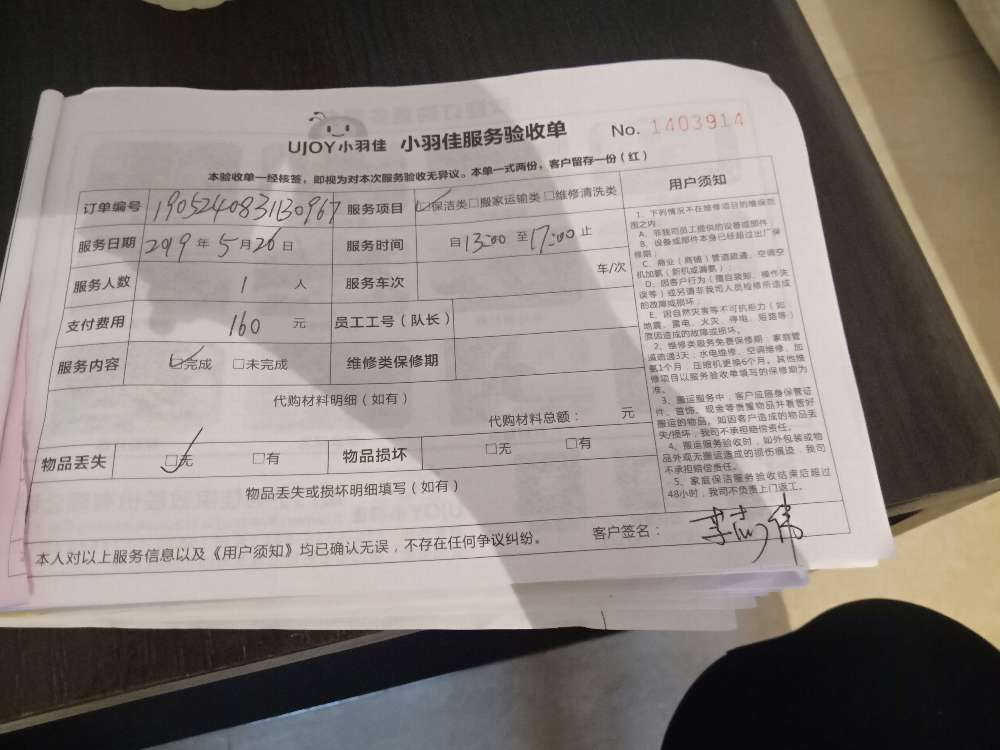 UJOY小羽佳 小羽佳服务验收单 No. 1403914
本验收单一经核签，即视为对本次服务验收无异议。本单一式两份，客户留存一份（红）
订单编号 190524083130967 服务项目 ☑保洁类□搬家运输类□维修清洗类
服务日期 2019 年 5 月 26 日 服务时间 自 13:00 至 17:00 止
服务人数 1 人 服务车次 车/次
支付费用 160 元 员工工号（队长）
服务内容 ☑完成 □未完成 维修类保修期
代购材料明细（如有）
代购材料总额： 元
物品丢失 ☑无 □有 物品损坏 □无 □有
物品丢失或损坏明细填写（如有）
本人对以上服务信息以及《用户须知》均已确认无误，不存在任何争议纠纷。 客户签名：
用户须知
1、下列情况不在维修项目的维保范
围之内：
A、非我司员工提供的设备或部件；
B、设备或部件本身已经超过出厂保
修期；
C、商业（商铺）管道疏通、空调空
机加氟（新机或漏氟）；
D、因客户行为（擅自装卸、操作失
误等）或另请非我司人员检修所造成
的故障或损坏；
E、因自然灾害等不可抗拒力（如：
地震、雷电、火灾、停电、短路等）
原因造成的故障或损坏。
2、维修类服务免费保修期：家庭管
道疏通3天；水电维修、空调维修、加
氟1个月，压缩机更换6个月。其他维
修项目以服务验收单填写的保修期为
准。
3、搬运服务中，客户应随身保管证
件、首饰、现金等贵重物品并看管好
搬运的物品。如因客户造成的物品丢
失/损坏，我司不承担赔偿责任。
4、搬运服务验收时，如外包装或物
品外观无搬运造成的损伤痕迹，我司
不承担赔偿责任。
5、家庭保洁服务验收结束后超过
48小时，我司不负责上门返工。